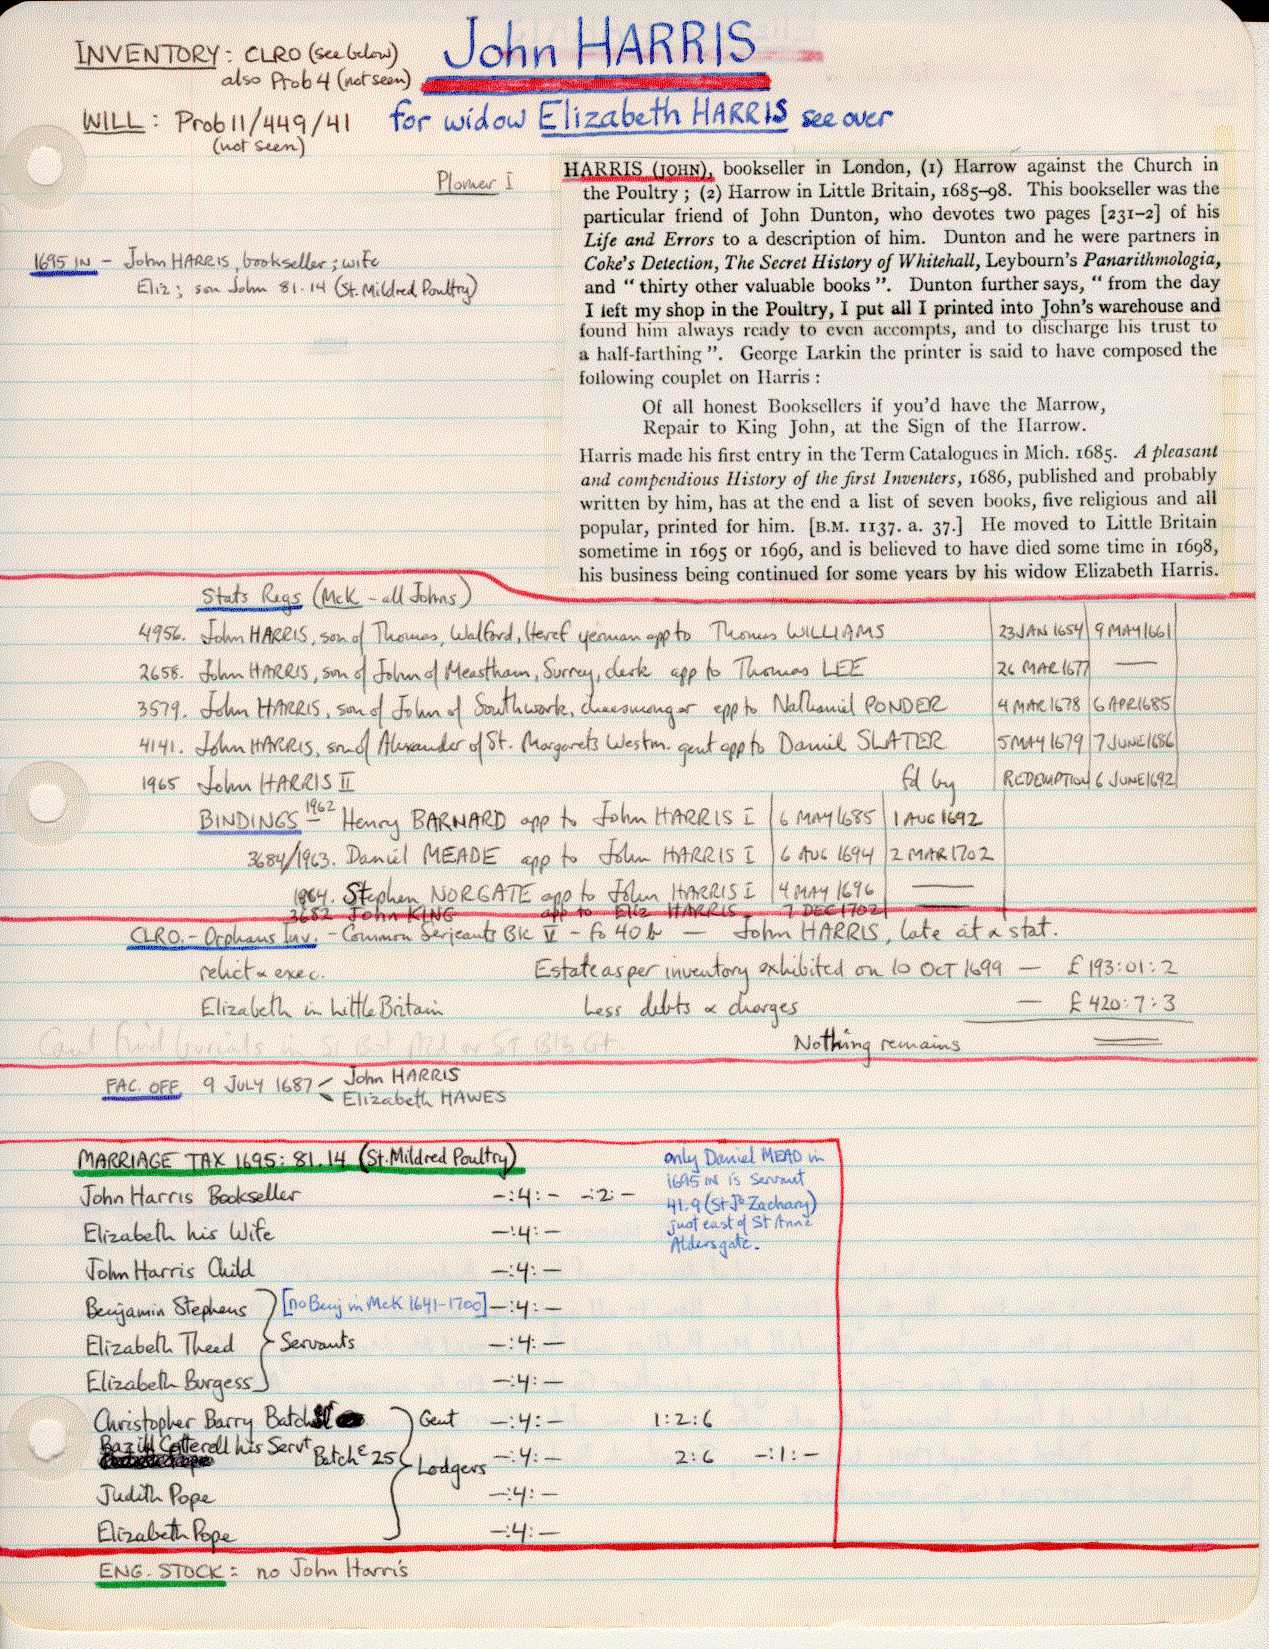 INVENTORY: CLRO (see below)
also Prob 4 (not seen)
John HARRIS
WILL: Prob 11/449/41
(not seen)
for widow Elizabeth HARRIS see over
Plomer I
HARRIS (JOHN), bookseller in London, (1) Harrow against the Church in
the Poultry; (2) Harrow in Little Britain, 1685-98. This bookseller was the
particular friend of John Dunton, who devotes two pages [231-2] of his
Life and Errors to a description of him. Dunton and he were partners in
Coke's Detection, The Secret History of Whitehall, Leybourn's Panarithmologia,
and "thirty other valuable books". Dunton further says, "from the day
I left my shop in the Poultry, I put all I printed into John's warehouse and
found him always ready to even accompts, and to discharge his trust to
a half-farthing". George Larkin the printer is said to have composed the
following couplet on Harris:
Of all honest Booksellers if you'd have the Marrow,
Repair to King John, at the Sign of the Harrow.
Harris made his first entry in the Term Catalogues in Mich. 1685. A pleasant
and compendious History of the first Inventers, 1686, published and probably
written by him, has at the end a list of seven books, five religious and all
popular, printed for him. [B.M. 1137. a. 37.] He moved to Little Britain
sometime in 1695 or 1696, and is believed to have died some time in 1698,
his business being continued for some years by his widow Elizabeth Harris.
1695 IN - John HARRIS, bookseller; wife
Eliz; son John 81.14 (St. Mildred Poultry)
Stats Regs (McK - all Johns)
4956. John HARRIS, son of Thomas, Walford, Heref yeman app to Thomas WILLIAMS 23 JAN 1654 9 MAY 1661
2658. John HARRIS, son of John of Meastham, Surrey, clerk app to Thomas LEE 26 MAR 1677 —
3579. John HARRIS, son of John of Southwark, cheesmonger app to Nathaniel PONDER 4 MAR 1678 6 APR 1685
4141. John HARRIS, son of Alexander of St. Margarets Westm. gent app to Daniel SLATER 5 MAY 1679 7 JUNE 1686
1965 John HARRIS II fd by REDEMPTION 6 JUNE 1692
BINDINGS - 1962 Henry BARNARD app to John HARRIS I 6 MAY 1685 1 AUG 1692
3684/1963. Daniel MEADE app to John HARRIS I 6 AUG 1694 2 MAR 1702
1964. Stephen NORGATE app to John HARRIS I 4 MAY 1696 —
3682 John KING app to Eliz HARRIS 7 DEC 1702 —
CLRO. - Orphans Inv. - Common Serjeants BK V - fo 40 b — John HARRIS, late cit & stat.
relict & exec. Estate as per inventory exhibited on 10 OCT 1699 — £193:01:2
Elizabeth in Little Britain Less debts & charges — £420:7:3
Cant find burials in St Bot Ald or St B's Gt.
Nothing remains
FAC. OFF. 9 JULY 1687 < John HARRIS
Elizabeth HAWES
MARRIAGE TAX 1695: 81.14 (St. Mildred Poultry)
John Harris Bookseller -:4:- -:2:-
Elizabeth his Wife -:4:-
John Harris Child -:4:-
Benjamin Stephens [no Benj in McK 1641-1700] -:4:-
Elizabeth Theed Servants -:4:-
Elizabeth Burgess -:4:-
Christopher Barry Batch Gent -:4:- 1:2:6
Bazill Cotterell his Servt Batchr 25 Lodgers -:4:- 2:6 -:1:-
Judith Pope -:4:-
Elizabeth Pope -:4:-
only Daniel MEAD in
1695 IN is servant
41.9 (St Jn Zachary)
just east of St Anne
Aldersgate.
ENG. STOCK: no John Harris